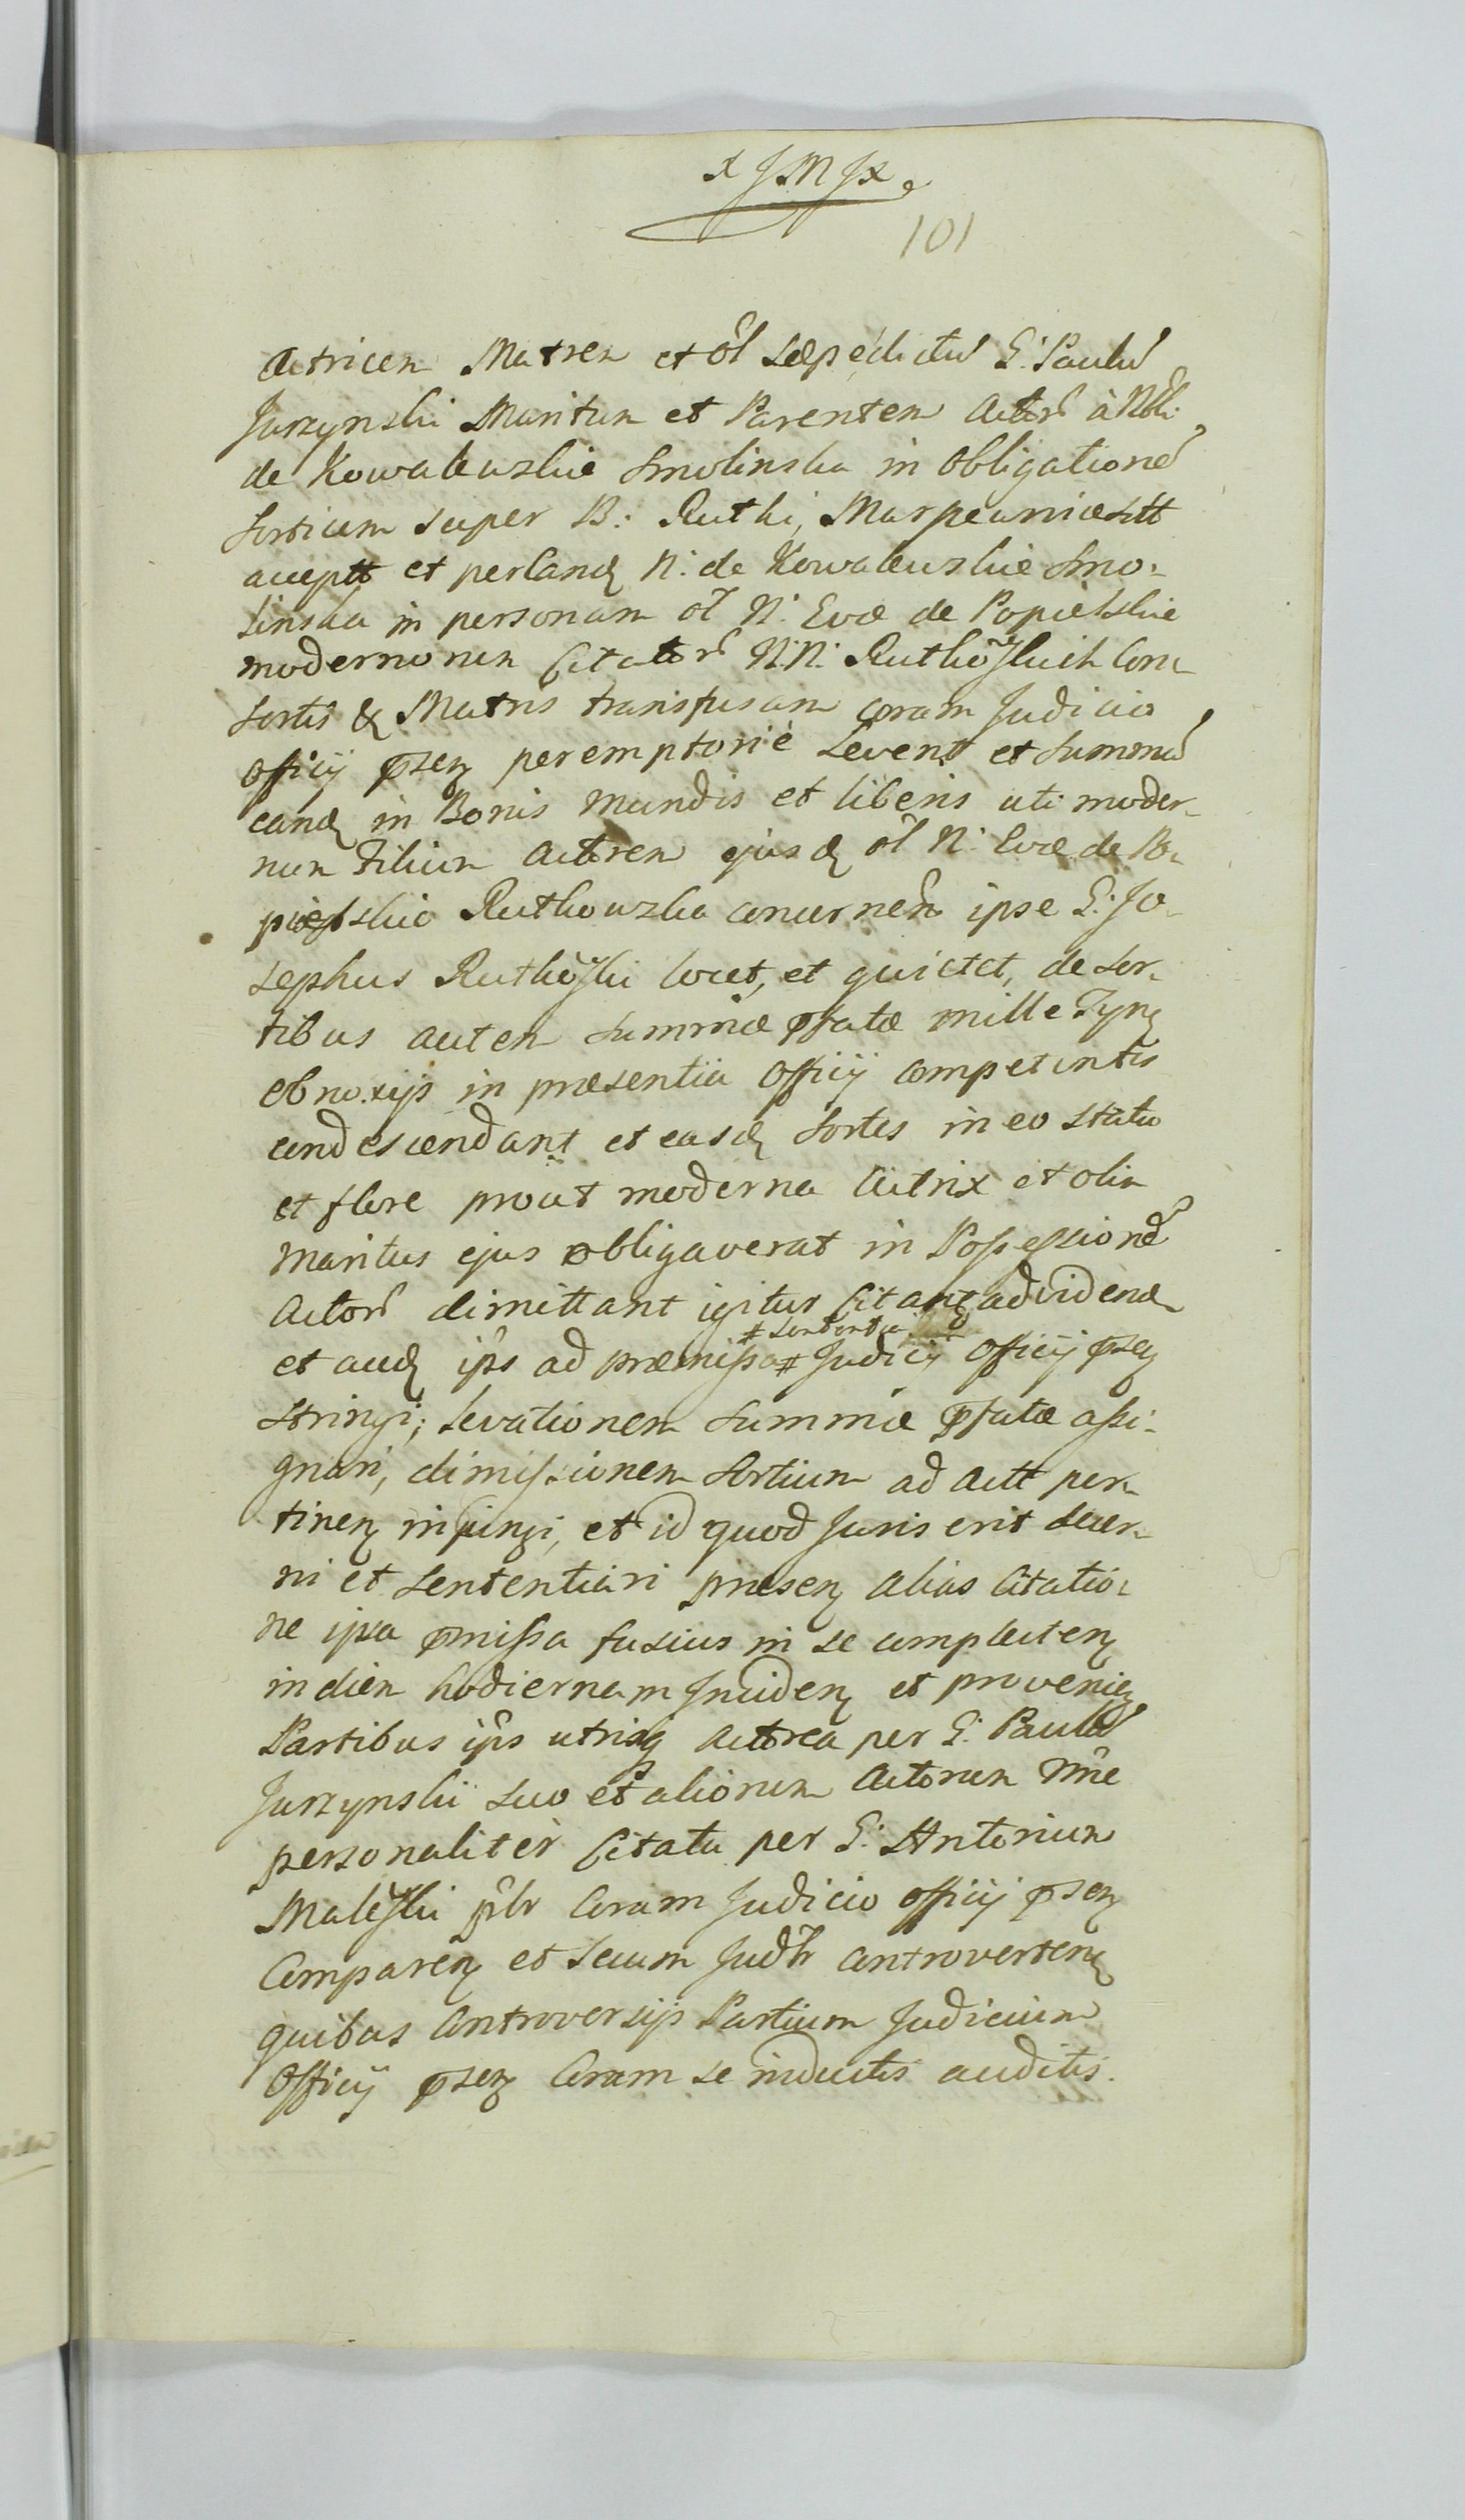 x J M J x
101
Actricem Matrem et ol saepedictu G. Paulu
Jurzynski Maritum et Parentem Actor à Nbli
de Kowalewskie Smolinska in obligatione
sortium super B: Rutki, Marpeanice sitt
accept et per eand N: de Kowalewskie Smo-
linska in personam ol N: Evae de Popielskie
modernorum Citator N:N: Rutkoskich Con-
sortis & Matris transfusam coram Judicio
Officij psen peremptoriè Levent et summa
eand in Bonis mundis et liberis uti moder-
num Filium Actorem ejusd ol N: Evae de Po-
pielskie Rutkowska concernen ipse G: Jo-
sephus Rutkoski locet, et quietet, de sor-
tibus autem summae pfatae mille Tyn
obnoxijs in praesentia Officij competentis
condescendant et easd sortes in eo statu
et flore prout moderna Actrix et olim
Maritus ejus obligaverat in Possessione
Actor dimittant igitur Citant ad vidend
# sententia
et aud ips ad praemissa # Judicij Officij psen
stringi; Levationem summae pfatae assi-
gnari, dimissionem sortium ad Actt per-
tinen injungi, et id quod Juris erit decer-
ni et sententiari praesen alias Citatio-
ne ipsa pmissa fusius in se complecten
in diem hodiernam Inciden et provenien
Partibus ips utrisq Actorea per G: Paulu
Jurzynski suo et aliorum Actorum nne
personaliter Citata per G: Antonium
Maleski plr Coram Judicio officij psen
Comparen et secum Judlr controverten
quibus Controversijs Partium Judicium
Officij psen Coram se inductis auditis.